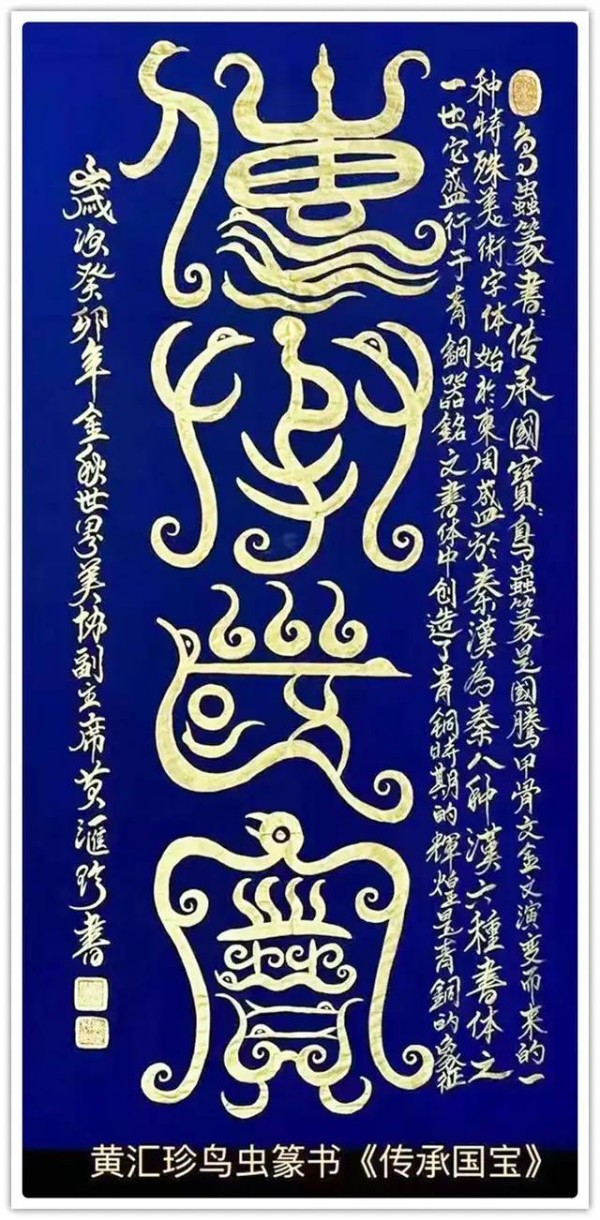 鸟蟲篆書：传承國寶：鳥蟲篆是國騰甲骨文金文演变而来的一
种特殊美術字体始於東周盛於秦漢為秦八种漢六種書体之
一也它盛行于青銅器銘文書体中创造了青铜時期的輝煌是青銅的象征
傳承國寶
歲次癸卯年金秋世界美协副主席黄滙珍書
黄汇珍鸟虫篆书《传承国宝》